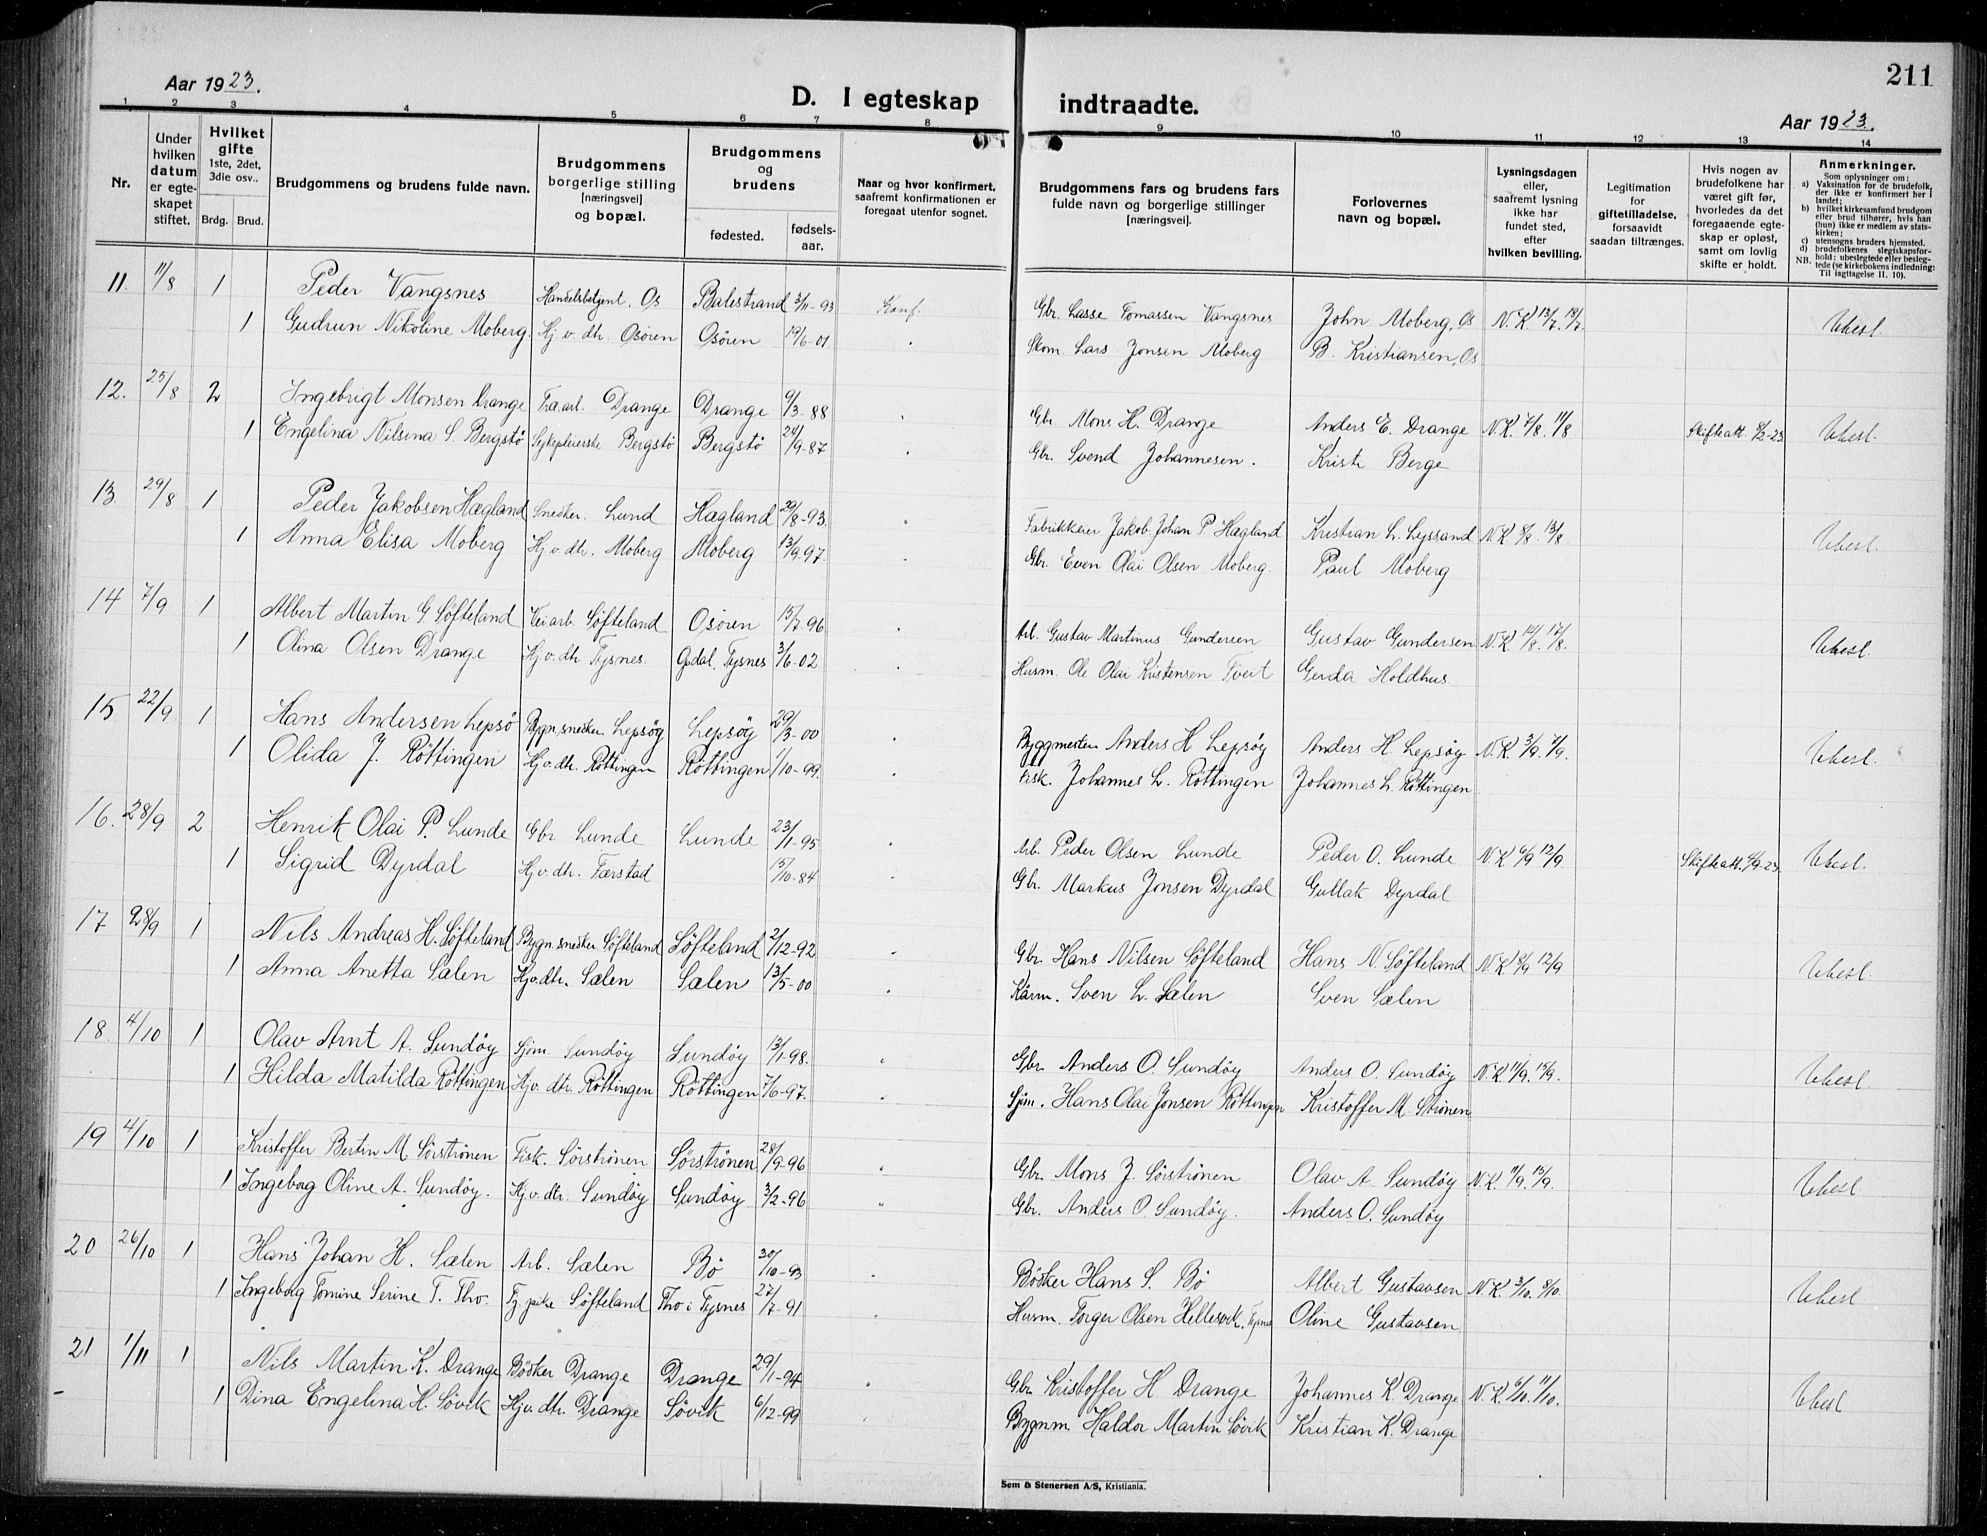 211
Aar 1923.
D. I egteskap indtraadte.
Aar 1923.
1 2 3 4 5 6 7 8 9 10 11 12 13 14
Nr.
Under hvilken datum er egteskapet stiftet.
Hvilket gifte 1ste, 2det, 3die osv..
Brdg. Brud.
Brudgommens og brudens fulde navn.
Brudgommens borgerlige stilling [næringsvei] og bopæl.
Brudgommens og brudens
fødested. fødselsaar.
Naar og hvor konfirmert, saafremt konfirmationen er foregaat utenfor sognet.
Brudgommens fars og brudens fars fulde navn og borgerlige stillinger [næringsvei].
Forlovernes navn og bopæl.
Lysningsdagen eller, saafremt lysning ikke har fundet sted, efter hvilken bevilling.
Legitimation for giftetilladelse, forsaavidt saadan tiltrænges.
Hvis nogen av brudefolkene har været gift før, hvorledes da det foregaaende egteskap er opløst, samt om lovlig skifte er holdt.
Anmerkninger.
Som oplysninger om:
a) Vaksination for de brudefolk, der ikke er konfirmert her i landet;
b) hvilket kirkesamfund brudgom eller brud tilhører, hvis han (hun) ikke er medlem av statskirken;
c) utensogns bruders hjemsted.
d) brudefolkenes slegtskapsforhold: ubeslegtede eller beslegtede (se kirkebokens indledning:
NB. Til iagttagelse II. 10).
11. 11/8 1 Peder Vangsnes Handelsbetjent. Os Balestrand 3/11-93 Konf. Gbr. Lasse Tomassen Vangsnes John Moberg, Os N.K. 13/7. 18/7. Ubesl.
1 Gudrun Nikoline Moberg. Hj.v. dtr. Osøren Osøren 19/6-01 Skom. Lars Jonsen Moberg B. Kristiansen, Os
12. 25/8 2 Ingebrigt Monsen Drange Fra.arl. Drange Drange 9/3-88 Gbr Mons H. Drange Anders E. Drange N.K. 7/8. 11/8 Skifteatt. Ubesl.
1 Engelina Nilsina S. Bergstø Sykepleierske Bergstø Bergstø 24/9-87 Gbr. Svend Johannesen. Kristi Berge
13 29/8 1 Peder Jakobsen Hægland Snedker. Lund Hægland 29/8-93. Fabrikkeier Jakob Johan P. Hægland Kristian L. Lyssand N.K 8/8. 13/8. Ubesl.
1 Anna Elisa Moberg Hj.v.dtr. Moberg Moberg 13/9-97. Gbr. Even Olai Olsen Moberg. Paul Moberg
14 7/9 1 Albert Martin G. Søfteland Veiarb. Søfteland Osøren 15/7-96 Arb. Gustav Martinus Gundersen Gustav Gundersen N.K. 14/8. 17/8. Ubesl.
1 Olina Olsen Drange Hj.v.dtr. Tysnes. Tysnes 3/6-02 Husm. Ole Olai Kristensen Tveit Gerda Holdhus
15 22/9 1 Hans Andersen Lepsø Bygn.snedker Lepsøy Lepsøy 29/3-00 Byggmester Anders H Lepsøy Anders H. Lepsøy N.K. 3/9. 7/9. Ubesl.
1 Olida J. Røttingen Hj.v.dtr. Røttingen Røttingen 1/10-99. Fisk. Johannes L. Røttingen Johannes L. Røttingen
16. 28/9 2 Henrik Olai P. Lunde Gbr Lunde Lunde 23/1-95 Arb. Peder Olsen Lunde Peder O. Lunde N.K 6/9 12/9. Skifteatt. Ubesl.
1 Sigrid Dyrdal Hj.v. dtr. Færstad 15/10-84 Gbr. Markus Jonsen Dyrdal Gullak Dyrdal
17 28/9 1 Nils Andreas H. Søfteland Bygn.snedker Søfteland Søfteland 2/12-92 Gbr. Hans Nilsen Søfteland Hans N. Søfteland N.K 8/9 12/9 Ubesl.
1 Anna Anetta Sælen Hj.v.dtr. Sælen Sælen 13/5-00 Kårm. Sven L. Sælen Sven Sælen
18. 4/10 1 Olav Arnt A. Sundøy Sjøm. Sundøy Sundøy 13/1-98. Gbr. Anders O. Sundøy Anders O. Sundøy N.K. 11/9. 13/9. Ubesl.
1 Hilda Matilda Røttingen Hj.v. dtr. Røttingen Røttingen 7/6-97. Sjøm. Hans Olai Jonsen Røttingen Kristoffer M. Strønen
19 4/10 1 Kristoffer Bertin M Sørstrønen Fisk. Sørstrønen Sørstrønen 28/9-96 Gbr. Mons J. Sørstrønen Olav A. Sundøy N.K. 11/9. 13/9. Ubesl.
1 Ingeborg Oline A. Sundøy. Hj.v. dtr. Sundøy Sundøy 3/2-96 Gbr. Anders O. Sundøy. Anders O. Sundøy
20 26/10 1 Hans Johan H. Sælen Arb. Sælen Bø 30/10-93 Bødker Hans S. Bø Albert Gustavsen N.K. 3/10. 8/10. Ubesl.
1 Ingeborg Tomine Serine T. Tho. Tj.pike Søfteland Tho i Tysnes 27/7-91 Husm. Torger Olsen Hellesvik, Tysnes Oline Gustavsen
21 1/11 1 Nils Martin K. Drange Bødker Drange Drange 29/1-94 Gbr. Kristoffer H Drange Johannes K. Drange N.K. 6/10. 11/10. Ubesl
1 Dina Engelina H. Søvik Hj.v. dtr. Drange Søvik 6/12-99 Bygnm. Haldor Martin Søvik Kristian K. Drange
Sem & Stenersen A/S, Kristiania.